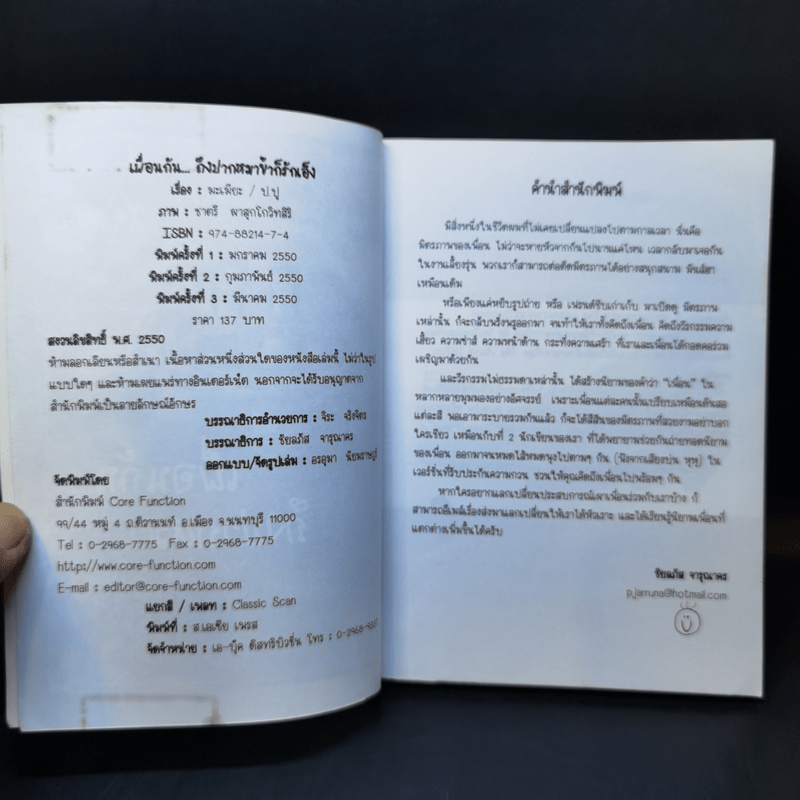 เผื่อนกัน... ถึงปากหมาข้าก็รักเอ็ง
เรื่อง : มะเฟียะ / ป.ปู
ภาพ : ชาตรี ผาสุกโกวิทสิริ
ISBN : 974-88214-7-4
พิมพ์ครั้งที่ 1 : มกราคม 2550
พิมพ์ครั้งที่ 2 : กุมภาพันธ์ 2550
พิมพ์ครั้งที่ 3 : มีนาคม 2550
ราคา 137 บาท
สงวนลิขสิทธิ์ พ.ศ. 2550
ห้ามลอกเลียนหรือสำเนา เนื้อหาส่วนหนึ่งส่วนใดของหนังสือเล่มนี้ ไม่ว่าในรูป
แบบใดๆ และห้ามเผยแพร่ทางอินเตอร์เน็ต นอกจากจะได้รับอนุญาตจาก
สำนักพิมพ์เป็นลายลักษณ์อักษร
บรรณาธิการอำนวยการ : จิระ จริงจิตร
บรรณาธิการ : ชัยลภัส จารุณาคร
ออกแบบ/จัดรูปเล่ม : อรอุมา นิยมราษฎร์
จัดพิมพ์โดย
สำนักพิมพ์ Core Function
99/44 หมู่ 4 ถ.ติวานนท์ อ.เมือง จ.นนทบุรี 11000
Tel : 0-2968-7775 Fax : 0-2968-7775
http://www.core-function.com
E-mail : editor@core-function.com
แยกสี / เพลท : Classic Scan
พิมพ์ที่ : ส.เอเซีย เพรส
จัดจำหน่าย : เอ-บุ๊ค ดิสทริบิวชั่น โทร : 0-2968-9337
คำนำสำนักพิมพ์
มีสิ่งหนึ่งในชีวิตผมที่ไม่เคยเปลี่ยนแปลงไปตามกาลเวลา นั่นคือ
มิตรภาพของเพื่อน ไม่ว่าจะหายหัวจากกันไปนานแค่ไหน เวลากลับมาเจอกัน
ในงานเลี้ยงรุ่น พวกเราก็สามารถต่อติดมิตรภาพได้อย่างสนุกสนาน มันส์ฮา
เหมือนเดิม
หรือเพียงแค่หยิบรูปถ่าย หรือ เฟรนด์ชิบเก่าเก็บ มาเปิดดู มิตรภาพ
เหล่านั้น ก็จะกลับพรั่งพรูออกมา จนทำให้เราทั้งคิดถึงเพื่อน คิดถึงวีรกรรมความ
เสี้ยว ความซ่าส์ ความหน้าด้าน กระทั่งความเศร้า ที่เราและเพื่อนได้กอดคอร่วม
เผชิญมาด้วยกัน
และวีรกรรมไม่ธรรมดาเหล่านั้น ได้สร้างนิยามของคำว่า "เพื่อน" ใน
หลากหลายมุมมองอย่างอัศจรรย์ เพราะเพื่อนแต่ละคนนั้นเปรียบเหมือนดินสอ
แต่ละสี พอเอามาระบายรวมกันแล้ว ก็จะได้สีสันของมิตรภาพที่สวยงามอย่างบอก
ใครเชียว เหมือนกับที่ 2 นักเขียนของเรา ที่ได้พยายามช่วยกันถ่ายทอดนิยาม
ของเพื่อน ออกมาจนหมดไส้หมดพุงไปตามๆ กัน (ฟังจากเสียงบ่น หุหุ) ใน
เวอร์ชั่นที่รับประกันความกวน ชวนให้คุณคิดถึงเพื่อนไปพร้อมๆ กัน
หากใครอยากแลกเปลี่ยนประสบการณ์เผาเพื่อนร่วมกับเราบ้าง ก็
สามารถอีเมล์เรื่องส่งมาแลกเปลี่ยนให้เราได้หัวเราะ และได้เรียนรู้นิยามเพื่อนที่
แตกต่างเพิ่มขึ้นได้ครับ
ชัยลภัส จารุณาคร
p.jarruna@hotmail.com